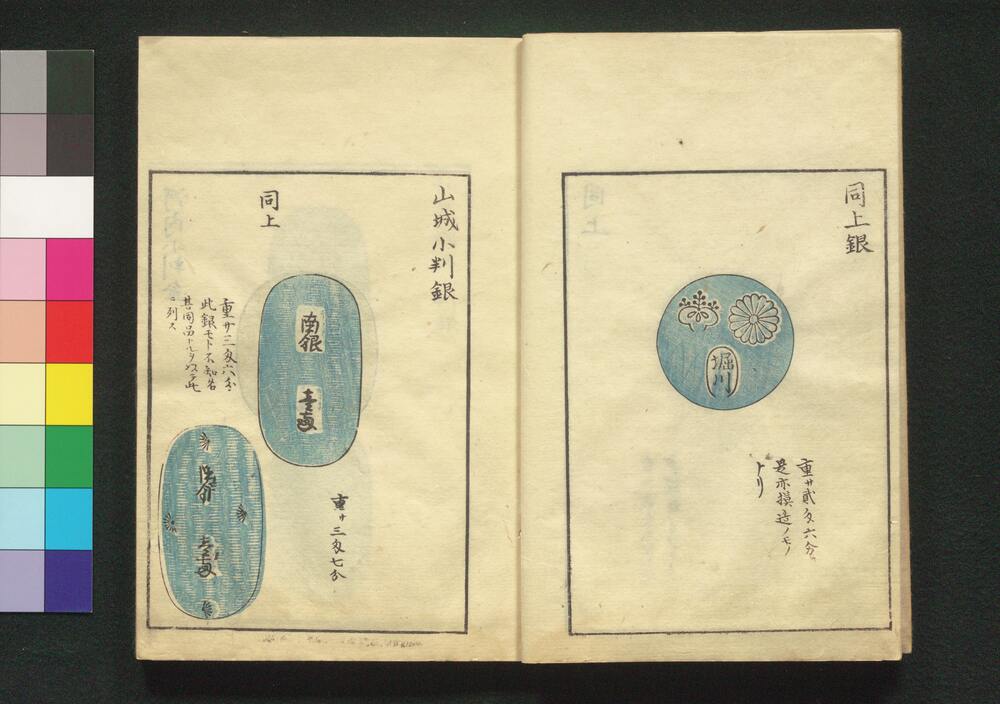 同上銀
堀川
重サ貳匁六分
是亦摸造ノモノ
ナリ
山城小判銀
南銀
壹両
重サ三匁七分
同上
重サ三匁六分
此銀モト不知名
其同品
列ス
壹両